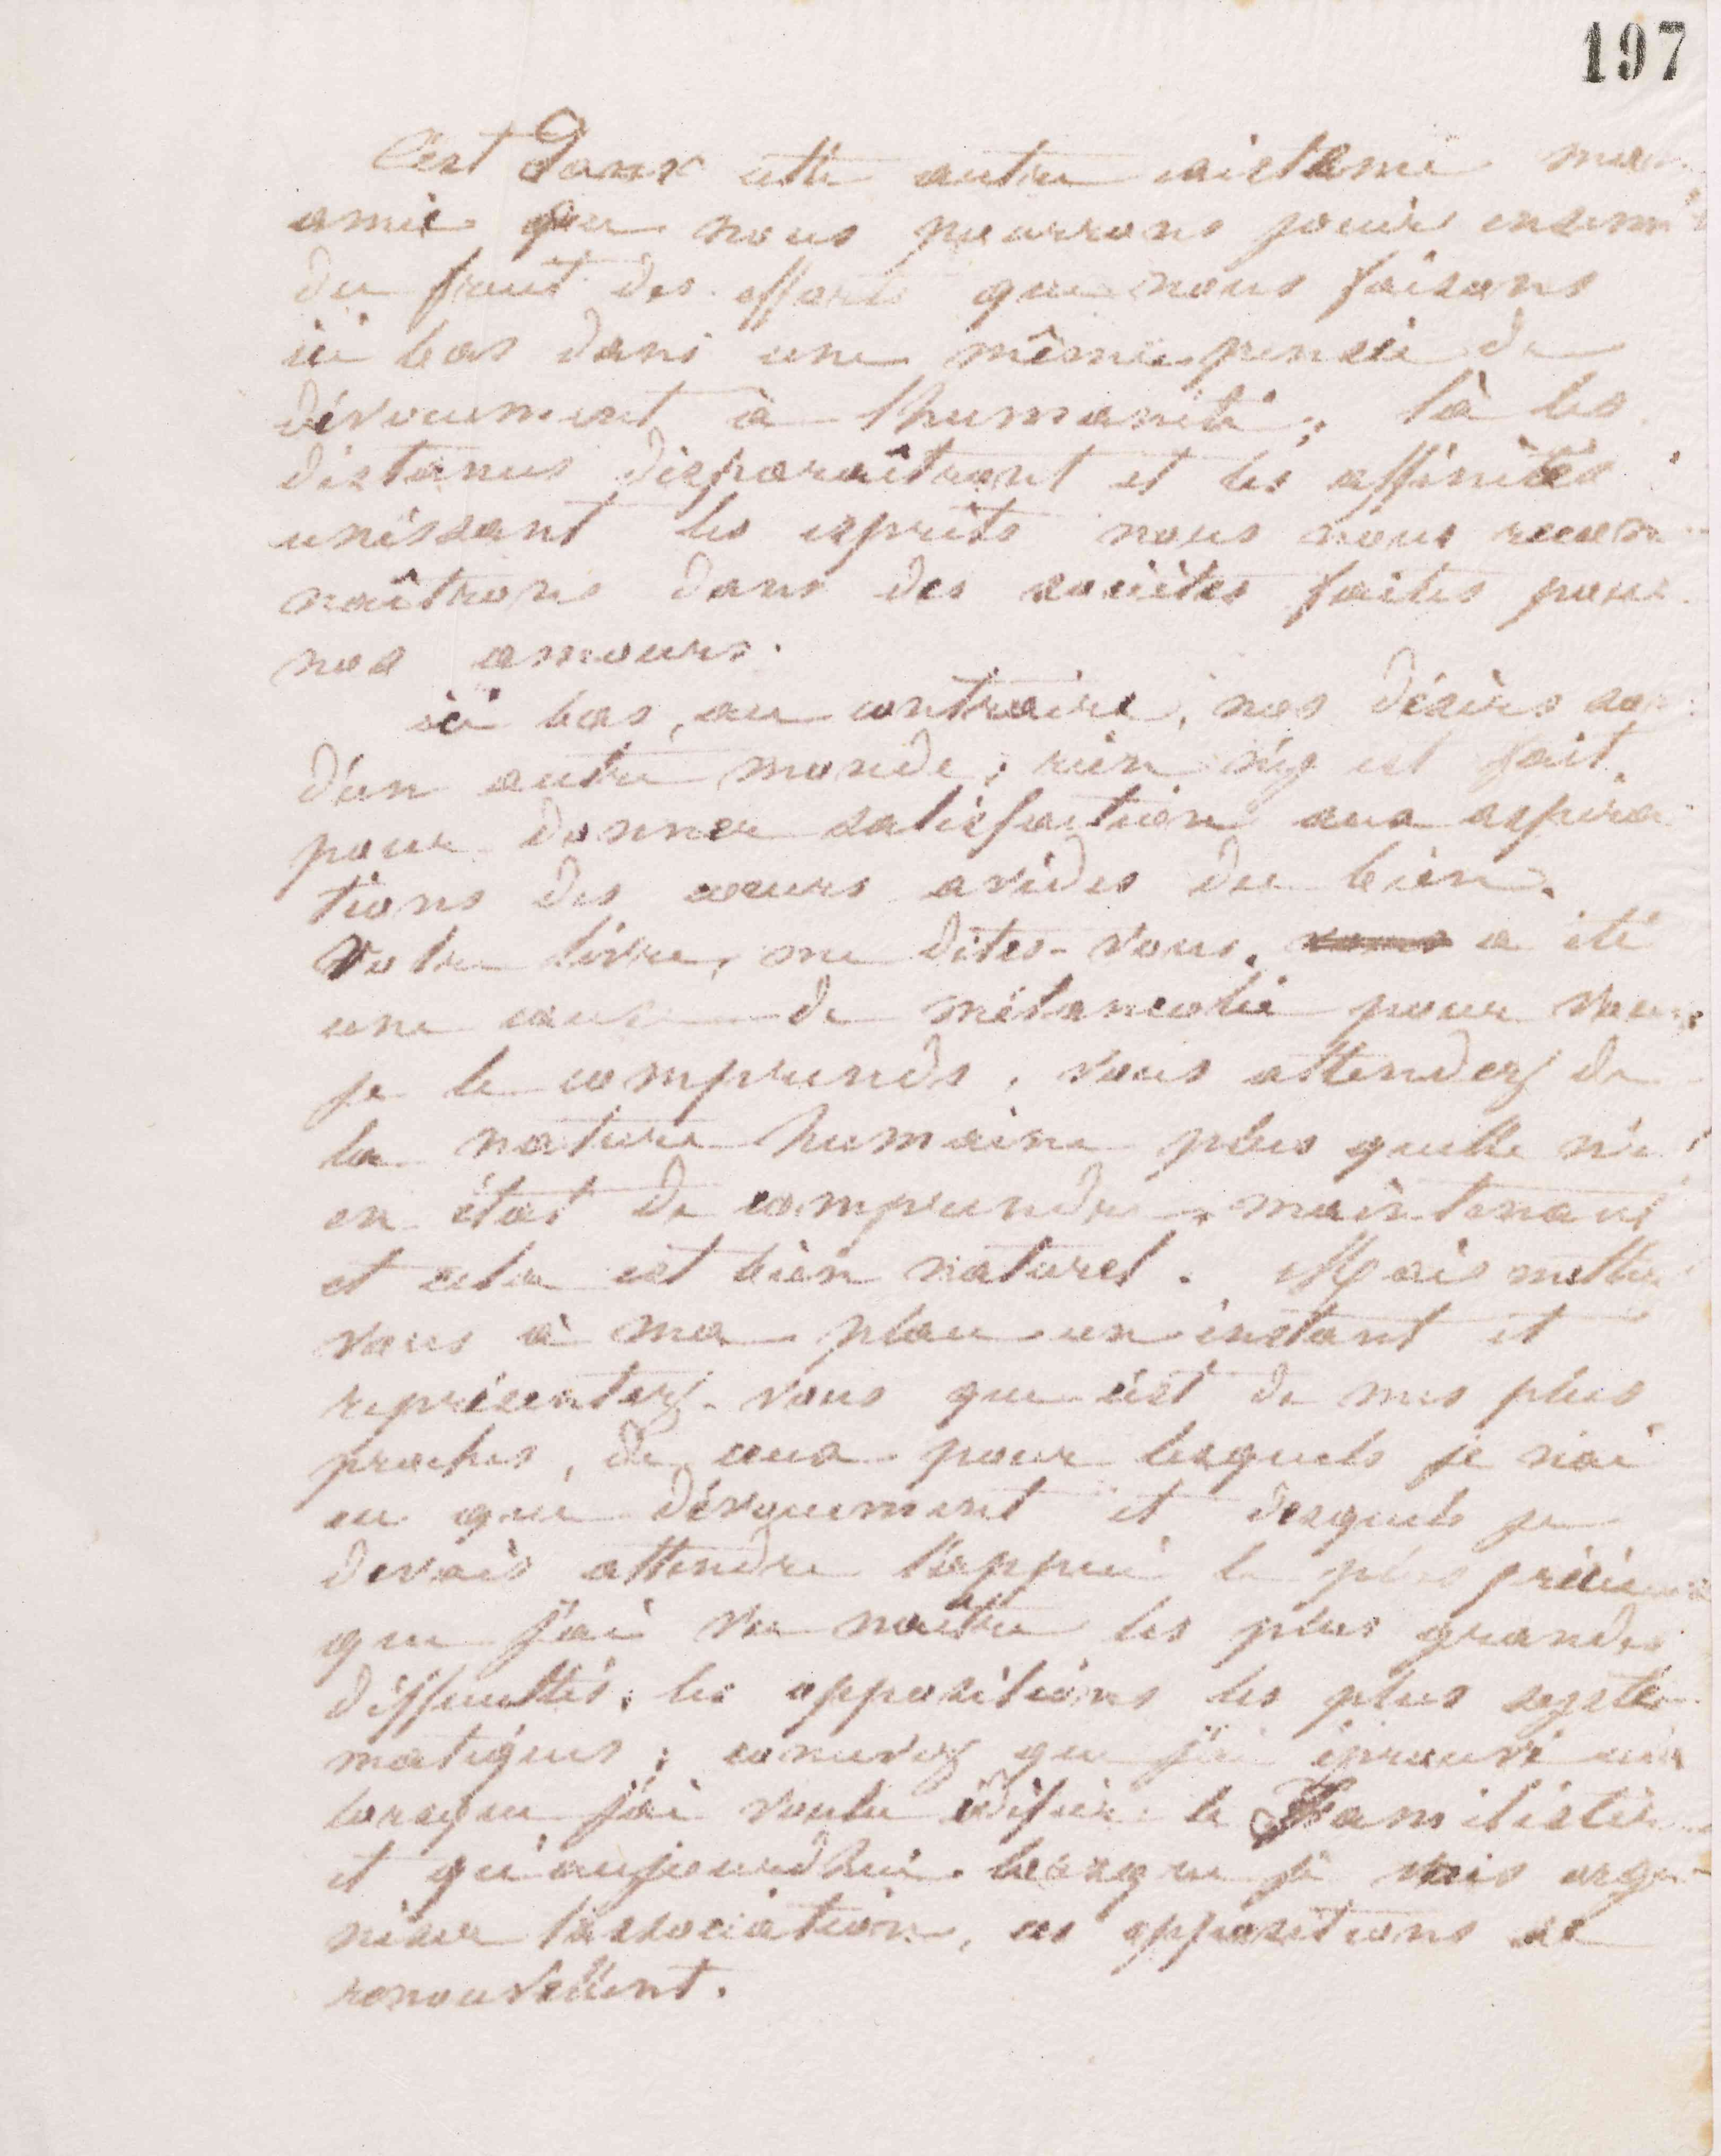 197
C'est dans cette autre existence mon
amie que nous pourrons jouir ensem
du fruit des efforts que nous faisons
ici bas dans une même pensée de
dévouement à l'humanité; là les
distances disparaîtront et les affinités
unissant les esprits nous nous recon
naîtrons dans des sociétés faites pour
nos amours.
ici bas, au contraire, nos désirs son
d'un autre monde; rien n'y est fait
pour donner satisfaction aux aspira
tions des cœurs avides du bien.
Votre livre, me dites-vous, a été
une cause de mélancolie pour vous
je le comprends, vous attendez de
la nature humaine plus qu'elle n'e
en état de comprendre maintenant
et cela est bien naturel. Mais mettez
vous à ma place un instant et
représentez-vous que c'est de mes plus
proches, de ceux pour lesquels je n'ai
eu que dévouement et desquels je
devais attendre l'appui le plus précieux
que j'ai vu naître les plus grandes
difficultés, les oppositions les plus systé
matiques; concevez que j'ai éprouvé
lorsque j'ai voulu édifier le Familistère
et qu'aujourd'hui lorsque je vais orga
niser l'association, ces oppositions se
renouvellent.